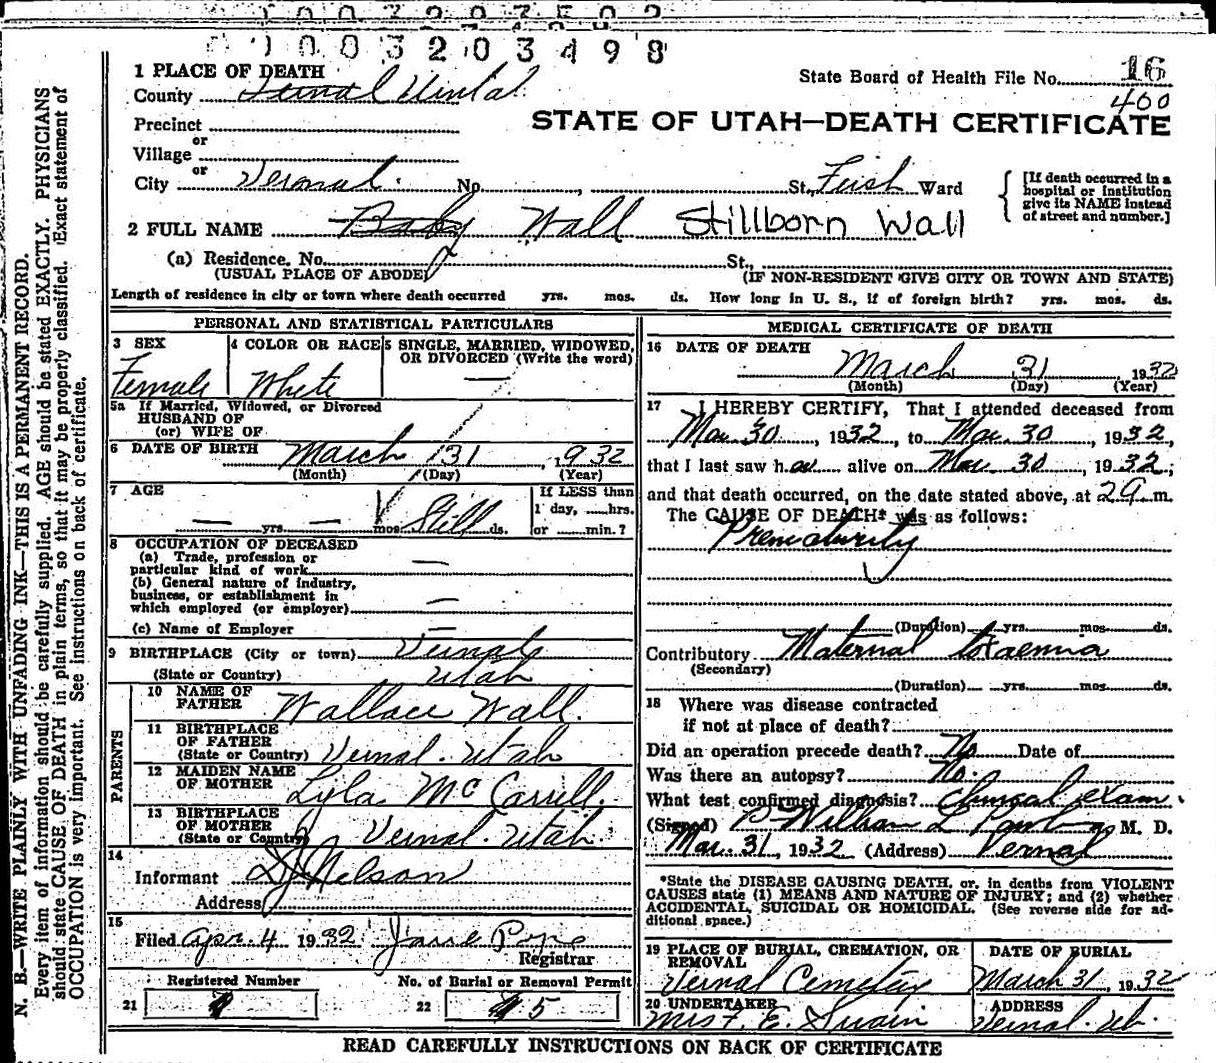 1003203498
1 PLACE OF DEATH
State Board of Health File No. 16
County Vernal Uintal
400
STATE OF UTAH—DEATH CERTIFICATE
Precinct
or
Village
or
City Vernal. No. , St., First Ward
[If death occurred in a hospital or institution give its NAME instead of street and number.]
2 FULL NAME Baby Wall Stillborn Wall
(a) Residence. No. St.,
(USUAL PLACE OF ABODE) (IF NON-RESIDENT GIVE CITY OR TOWN AND STATE)
Length of residence in city or town where death occurred yrs. mos. ds. How long in U. S., if of foreign birth? yrs. mos. ds.
PERSONAL AND STATISTICAL PARTICULARS
3 SEX
Female
4 COLOR OR RACE
White
5 SINGLE, MARRIED, WIDOWED, OR DIVORCED (Write the word)
—
5a If Married, Widowed, or Divorced
HUSBAND OF
(or) WIFE OF
6 DATE OF BIRTH March 31, 1932
(Month) (Day) (Year)
7 AGE
— yrs. — mos. Still ds.
If LESS than
1 day, hrs.
or min.?
8 OCCUPATION OF DECEASED
(a) Trade, profession or
particular kind of work —
(b) General nature of industry,
business, or establishment in
which employed (or employer) —
(c) Name of Employer —
9 BIRTHPLACE (City or town) Vernal
(State or Country) Utah
PARENTS
10 NAME OF FATHER Wallace Wall.
11 BIRTHPLACE OF FATHER
(State or Country) Vernal. Utah
12 MAIDEN NAME OF MOTHER Lyla McCarrell.
13 BIRTHPLACE OF MOTHER
(State or Country) Vernal. Utah.
14
Informant D J Nelson
Address
15
Filed Apr. 4 1932 Jane Pope
Registrar
Registered Number No. of Burial or Removal Permit
21 22 5
MEDICAL CERTIFICATE OF DEATH
16 DATE OF DEATH
March 31 1932
(Month) (Day) (Year)
17 I HEREBY CERTIFY, That I attended deceased from
Mar. 30, 1932, to Mar. 30, 1932,
that I last saw h alive on Mar. 30, 1932;
and that death occurred, on the date stated above, at m.
The CAUSE OF DEATH* was as follows:
Prematurity
(Duration) yrs. mos. ds.
Contributory Maternal toxaemia
(Secondary)
(Duration) yrs. mos. ds.
18 Where was disease contracted
if not at place of death?
Did an operation precede death? No Date of
Was there an autopsy? No.
What test confirmed diagnosis? Clinical exam.
(Signed) William L M. D.
Mar. 31, 1932 (Address) Vernal
*State the DISEASE CAUSING DEATH, or, in deaths from VIOLENT
CAUSES state (1) MEANS AND NATURE OF INJURY; and (2) whether
ACCIDENTAL, SUICIDAL OR HOMICIDAL. (See reverse side for additional space.)
19 PLACE OF BURIAL, CREMATION, OR REMOVAL
Vernal Cemetery
DATE OF BURIAL
March 31, 1932
20 UNDERTAKER
Mrs F. E. Swain
ADDRESS
Vernal. Ut.
READ CAREFULLY INSTRUCTIONS ON BACK OF CERTIFICATE
N. B.—WRITE PLAINLY WITH UNFADING INK—THIS IS A PERMANENT RECORD.
Every item of information should be carefully supplied. AGE should be stated EXACTLY. PHYSICIANS
should state CAUSE OF DEATH in plain terms, so that it may be properly classified. Exact statement of
OCCUPATION is very important. See instructions on back of certificate.